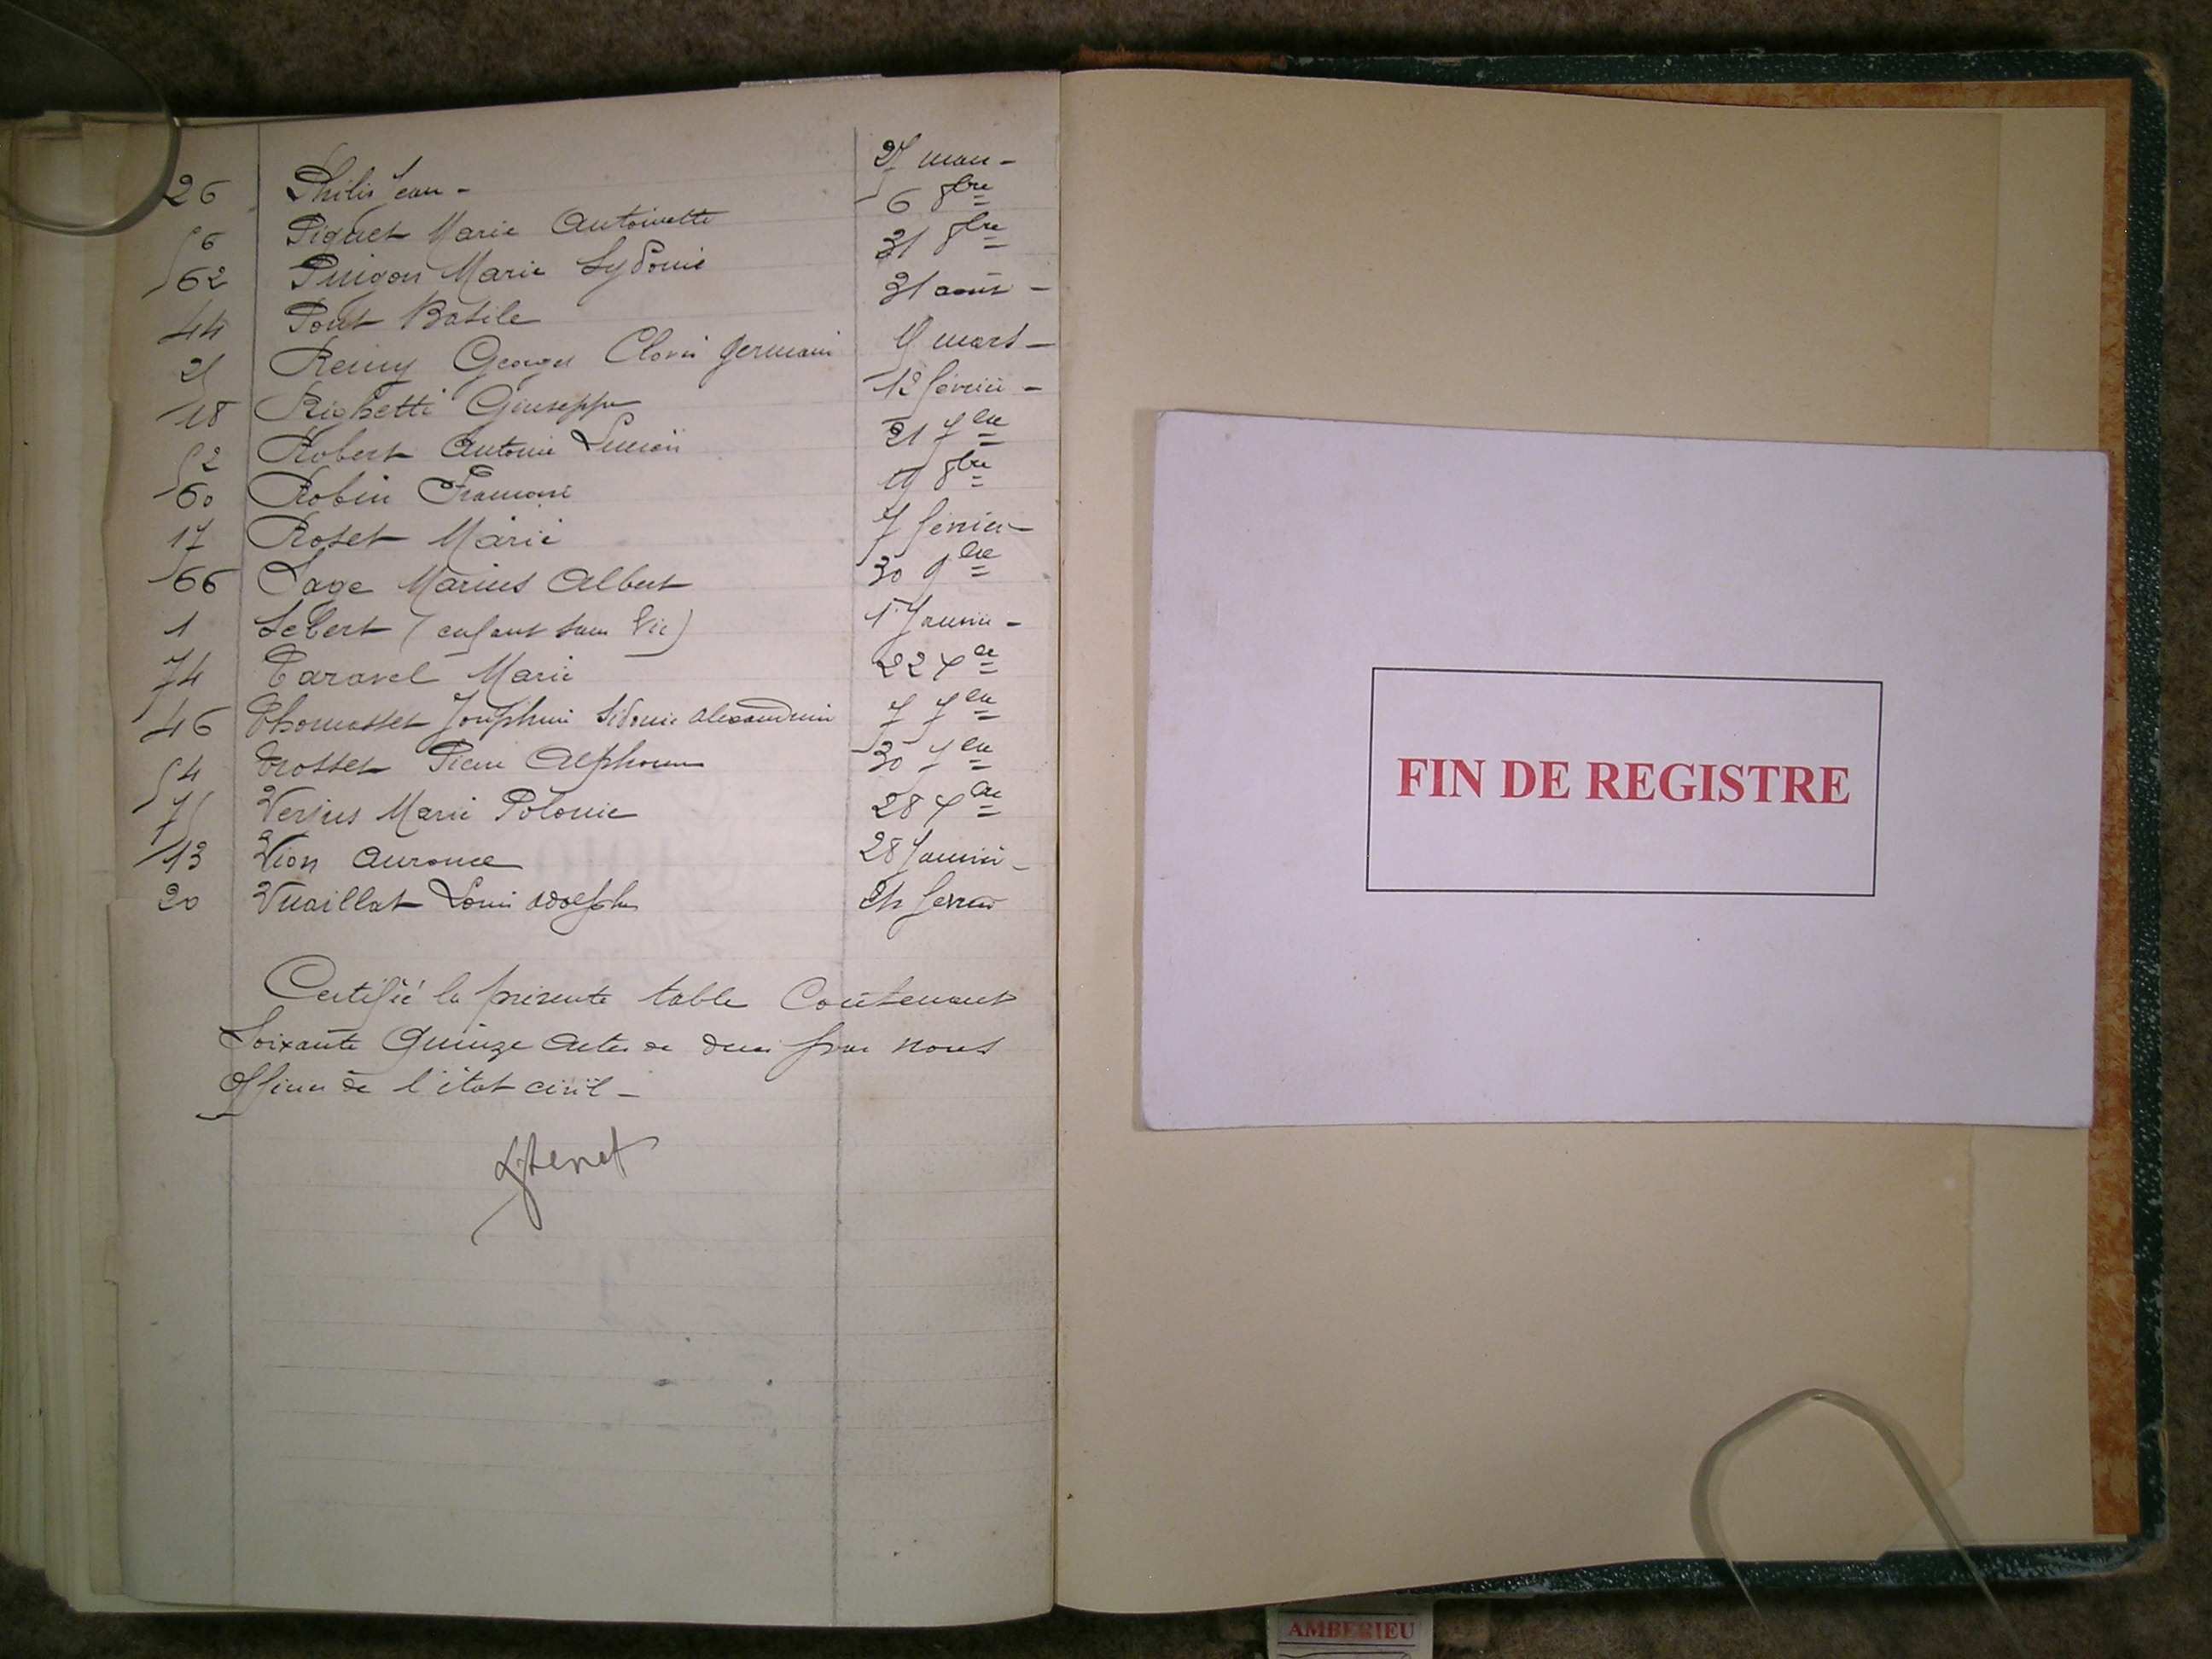 26 Philis Jean - 27 mars -
56 Piguet Marie Antoinette 6 8bre
62 Marie Sydonie 31 8bre
44 Pont Basile 31 août -
25 Remy Georges Clovis Germain 19 mars -
18 Righetti Giuseppe 12 février -
52 Robert Antoine Lucien 21 7bre
60 Robin 19 8bre
17 Roset Marie 7 février
66 Sage Marius Albert 30 9bre
1 Sebert (enfant sans vie) 1er Janvier -
74 Taravel Marie 22 Xbre
46 Thomasset Joséphine Sidonie Alexandrine 7 7bre
54 Trosset Pierre Alphonse 30 7bre
75 Verjus Marie Polonie 28 Xbre
13 Vion 28 Janvier -
20 Vuaillat Louis Adolphe février
Certifié la présente table Contenant
Soixante Quinze actes de décès par nous
Officier de l'état civil -
FIN DE REGISTRE
AMBERIEU